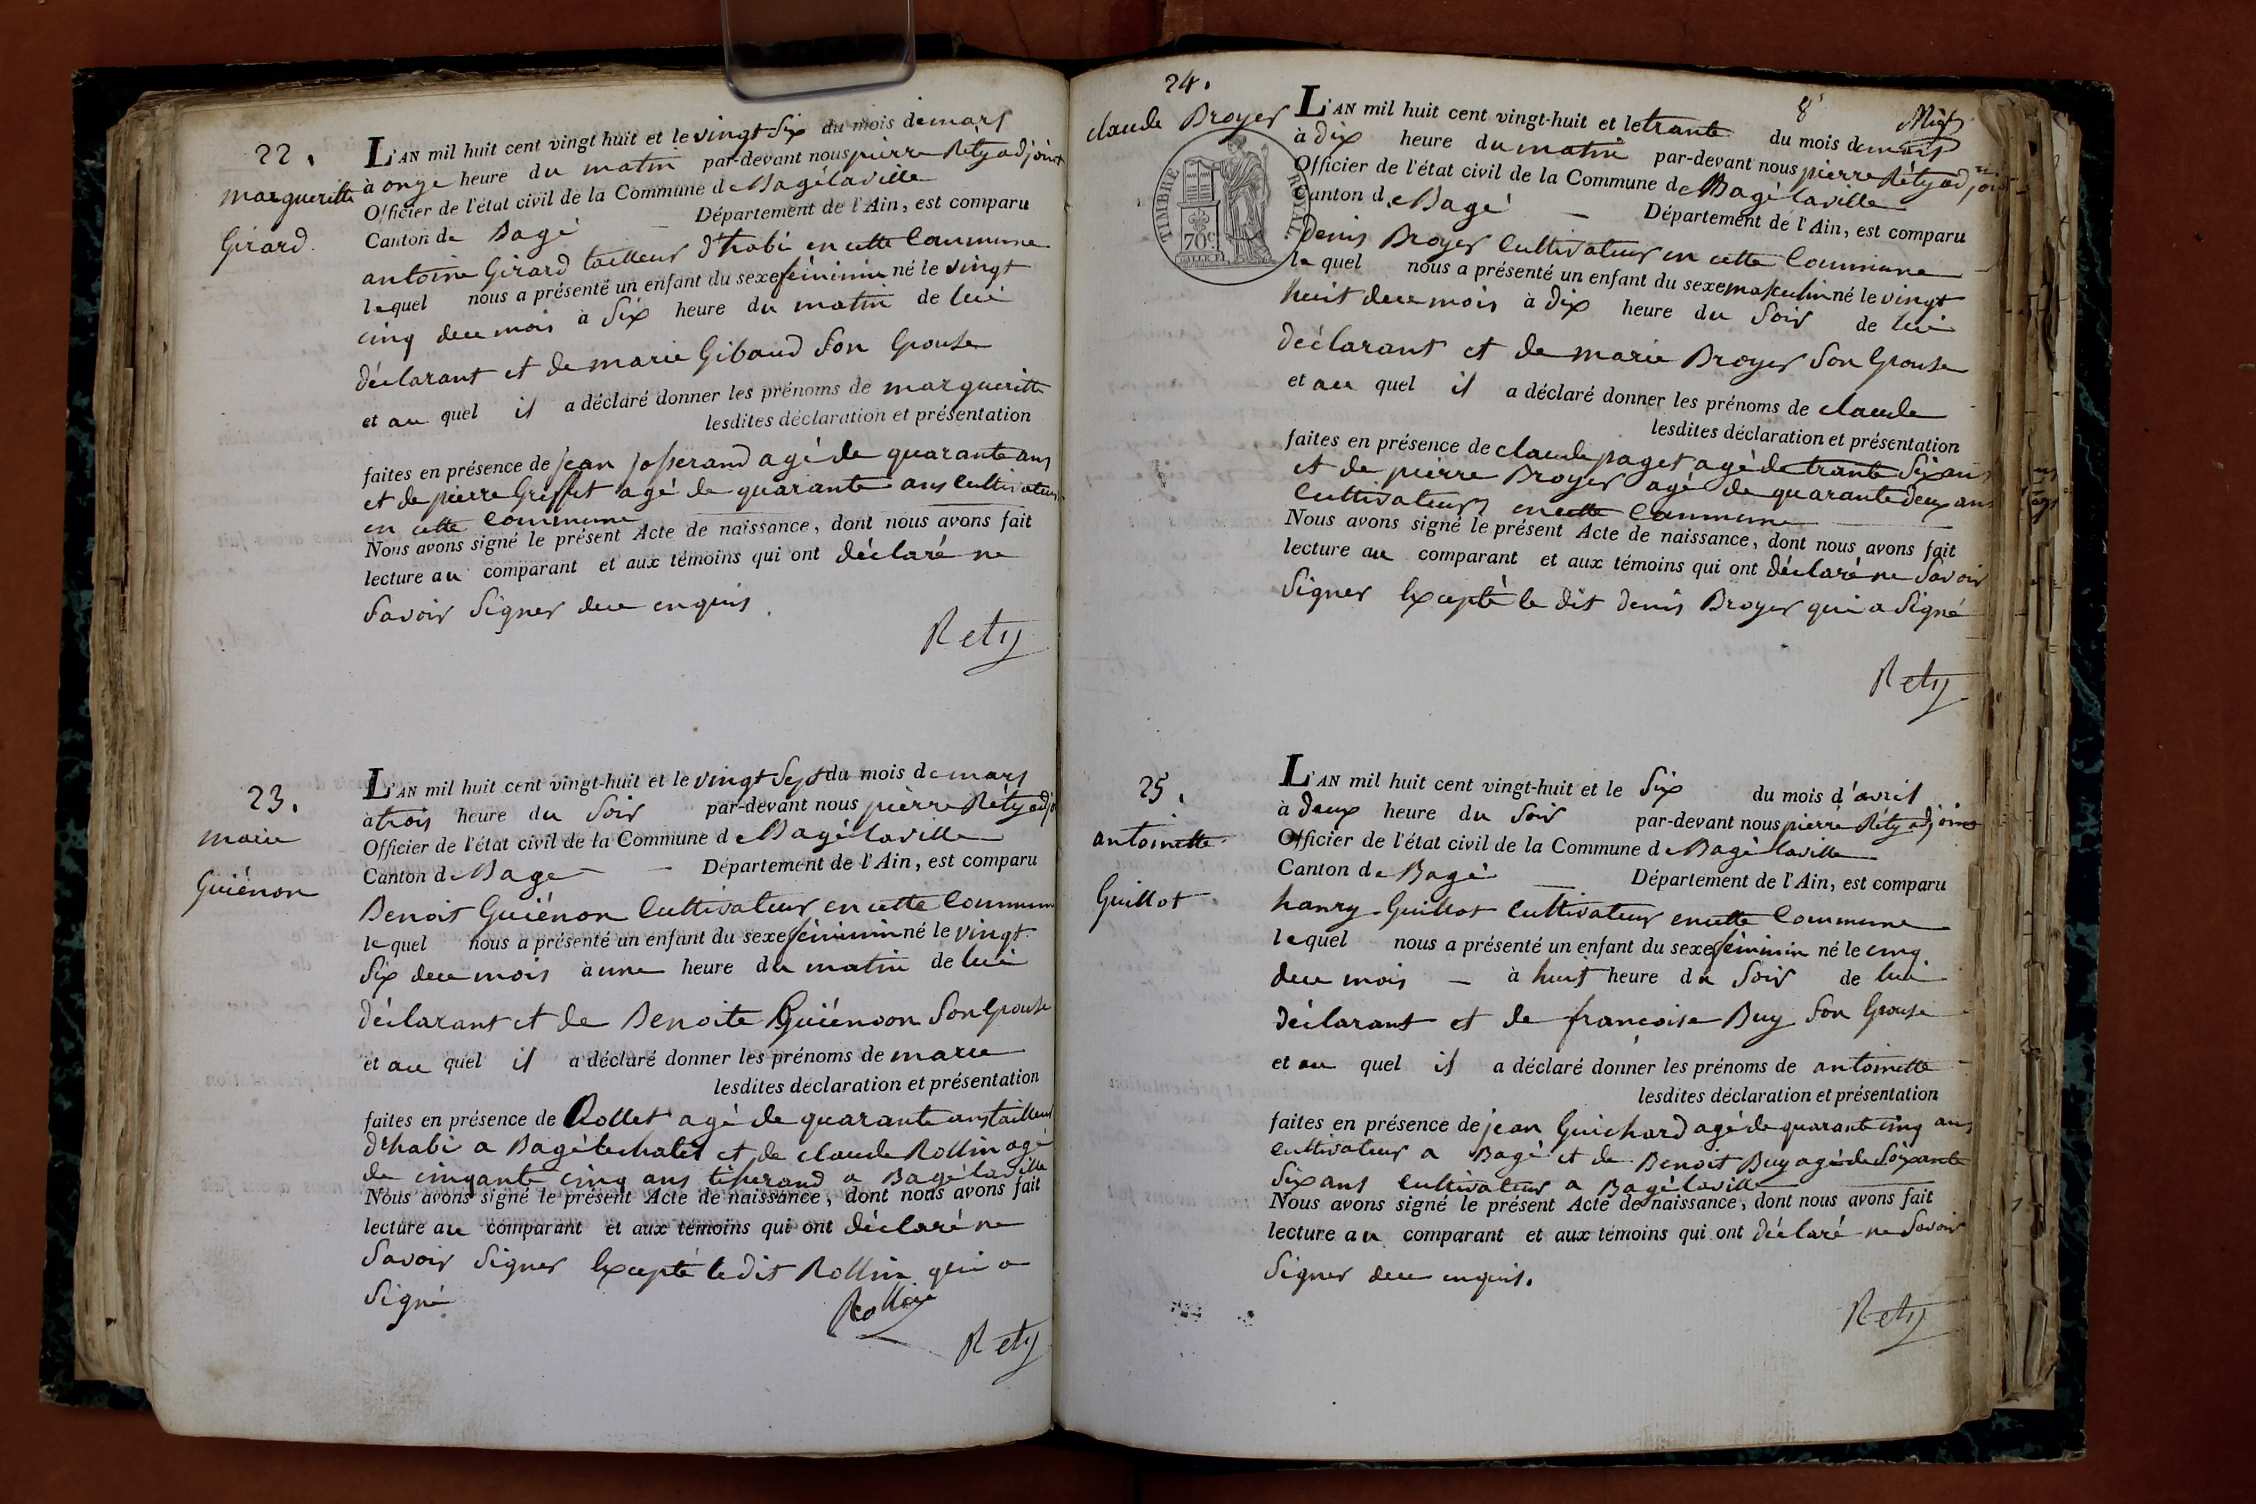 22.
margueritte
Girard.
L'AN mil huit cent vingt huit et le vingt Six du mois de mars
à onze heure du matin par-devant nous pierre Réty adjoint
Officier de l'état civil de la Commune de Bagélaville
Canton de Bagé — Département de l'Ain, est comparu
antoine Girard tailleur d'habi en cette Commune
lequel nous a présenté un enfant du sexe féminin né le vingt
cinq dece mois à Six heure du matin de lui
déclarant et de marie Gibaud Son Epouse
et au quel il a déclaré donner les prénoms de margueritte
lesdites déclaration et présentation
faites en présence de jean josserand agé de quarante ans
et de pierre Greffet agé de quarante ans Cultivateurs
en cette Commune
Nous avons signé le présent Acte de naissance, dont nous avons fait
lecture au comparant et aux témoins qui ont déclaré ne
Savoir Signer dece enquis.
Rety
23.
marie
Guiénon
L'AN mil huit cent vingt-huit et le vingt Sept du mois de mars
à trois heure du Soir par-devant nous pierre Réty adjo
Officier de l'état civil de la Commune de Bagélaville
Canton de Bage — Département de l'Ain, est comparu
Benoit Guiénon Cultivateur en cette Commune
lequel nous a présenté un enfant du sexe féminin né le vingt
Six dece mois à une heure du matin de lui
déclarant et de Benoite Guiénon Son Epouse
et au quel il a déclaré donner les prénoms de marie
lesdites déclaration et présentation
faites en présence de Rollet agé de quarante ans tailleur
d'habi a Bagélechatel et de claude Rollin agé
de cinqante cinq ans tisserand a Bagélaville
Nous avons signé le présent Acte de naissance, dont nous avons fait
lecture au comparant et aux témoins qui ont déclaré ne
Savoir Signer Excepté le dit Rollin qui a
Signé
Rollin
Rety
24.
claude Broyer
TIMBRE ROYAL
70c
8e
L'AN mil huit cent vingt-huit et le trante du mois de mars
à dix heure du matin par-devant nous pierre Réty adjoint
Officier de l'état civil de la Commune de Bagélaville
Canton de Bagé — Département de l'Ain, est comparu
Denis Broyer Cultivateur en cette Commune
le quel nous a présenté un enfant du sexe masculin né le vingt
huit dece mois à dix heure du Soir de lui
déclarant et de marie Broyer Son Epouse
et au quel il a déclaré donner les prénoms de claude
lesdites déclaration et présentation
faites en présence de claude paget agé de trante Six ans
et de pierre Broyer agé de quarante deux ans
Cultivateurs en cette Commune
Nous avons signé le présent Acte de naissance, dont nous avons fait
lecture au comparant et aux témoins qui ont déclaré ne Savoir
Signer Excepté le dit denis Broyer qui a Signé
Rety
25.
antoinette
Guillot
L'AN mil huit cent vingt-huit et le Six du mois d'avril
à deux heure du Soir par-devant nous pierre Réty adjoint
Officier de l'état civil de la Commune de Bagélaville
Canton de Bagé — Département de l'Ain, est comparu
hanry Guillot Cultivateur en cette Commune
lequel nous a présenté un enfant du sexe féminin né le cinq
dece mois — à huit heure du Soir de lui
déclarant et de francoise Buy Son Epouse
et au quel il a déclaré donner les prénoms de antoinette
lesdites déclaration et présentation
faites en présence de jean Guichard agé de quarante cinq ans
cultivateur a Bagé et de Benoit Buy agé de Soixante
Six ans Cultivateur a Bagélaville
Nous avons signé le présent Acte de naissance, dont nous avons fait
lecture au comparant et aux témoins qui ont déclaré ne Savoir
Signer dece enquis.
Rety